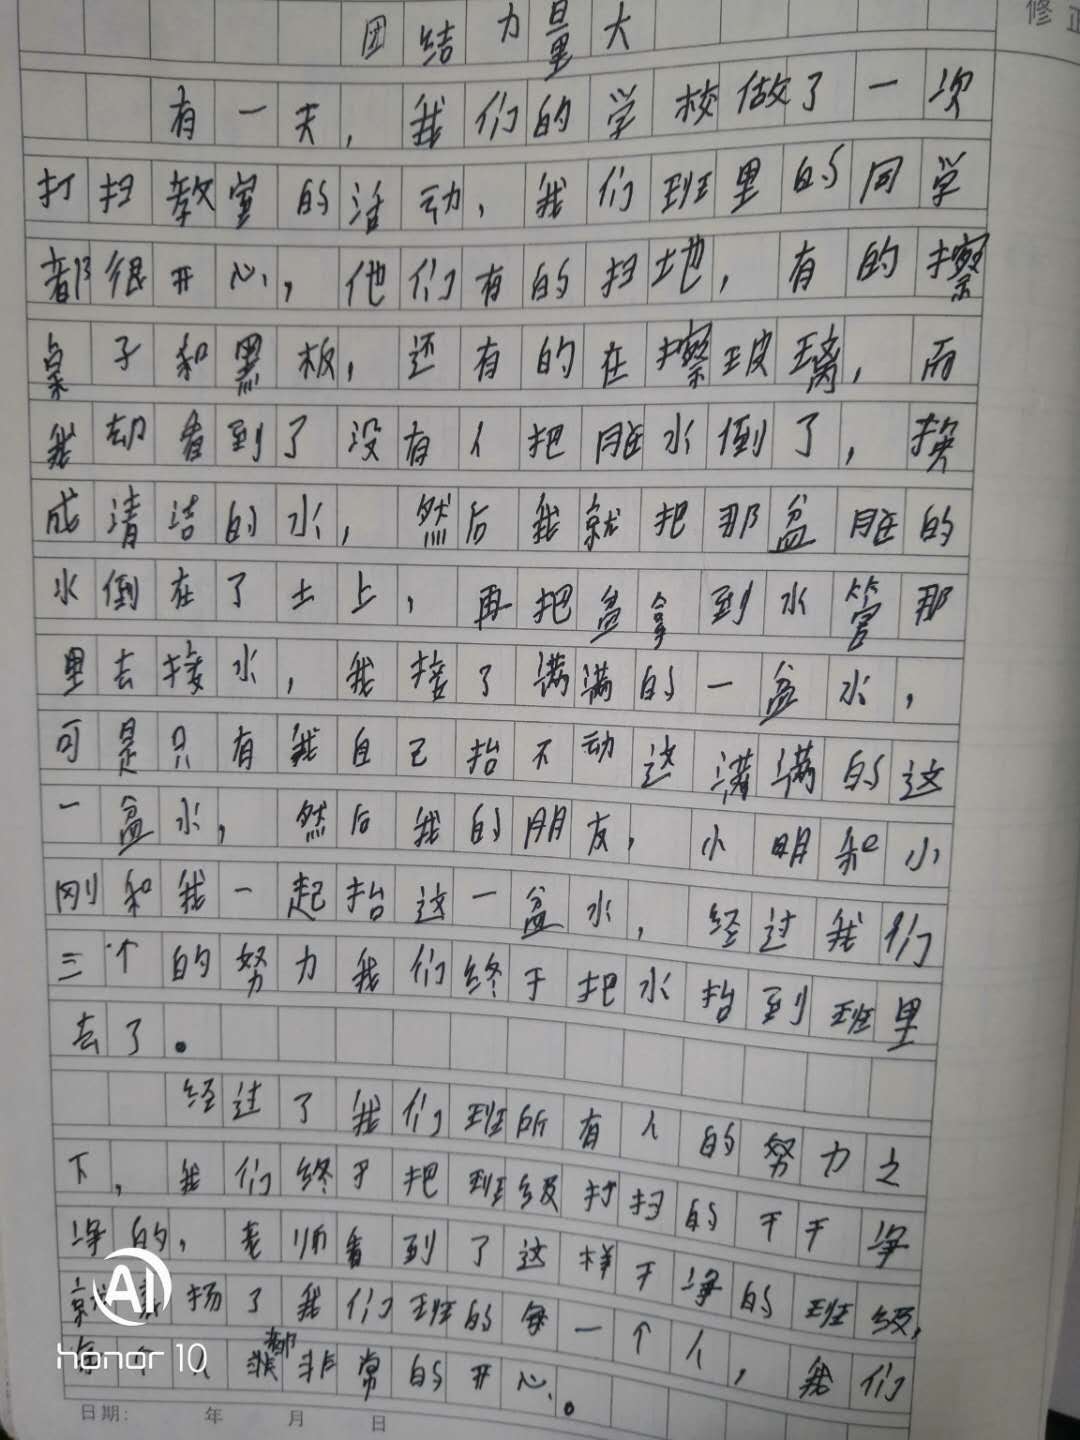 修正
团结力量大
有一天，我们的学校做了一次
打扫教室的活动，我们班里的同学
都很开心，他们有的扫地，有的擦
桌子和黑板，还有的在擦玻璃，而
我却看到了没有人把脏水倒了，换
成清洁的水，然后我就把那盆脏的
水倒在了土上，再把盆拿到水管那
里去接水，我接了满满的一盆水，
可是只有我自己抬不动这满满的这
一盆水，然后我的朋友，小明和小
刚和我一起抬这一盆水，经过我们
三个的努力我们终于把水抬到班里
去了。
经过了我们班所有人的努力之
下，我们终于把班级打扫的干干净
净的，老师看到了这样干净的班级，
就表扬了我们班的每一个人，我们
每个人都非常的开心。
日期： 年 月 日
AI
honor 10